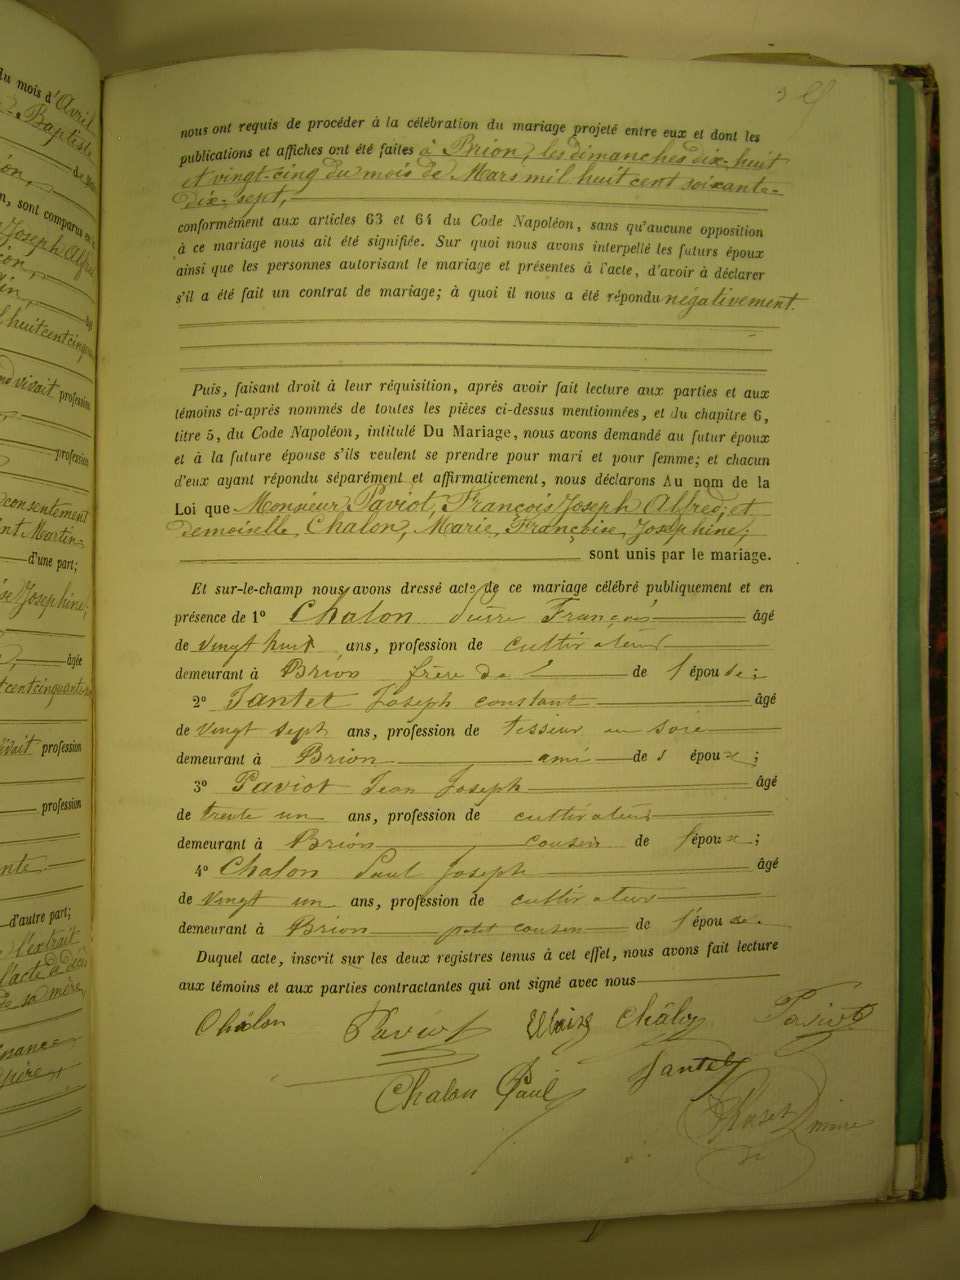 du mois d'Avril
Baptiste
sont comparus
Joseph Alfred
huit cent cinqua
vivait profession
profession
consentement
Martin
d'une part;
Josephine;
âgée
cent cinquante
vivait profession
profession
d'autre part;
l'extrait
l'acte de décès
de sa mère
père
nous ont requis de procéder à la célébration du mariage projeté entre eux et dont les
publications et affiches ont été faites à Brion, les dimanches dix-huit
et vingt-cinq du mois de Mars mil huit cent soixante-
dix-sept,
conformément aux articles 63 et 64 du Code Napoléon, sans qu'aucune opposition
à ce mariage nous ait été signifiée. Sur quoi nous avons interpellé les futurs époux
ainsi que les personnes autorisant le mariage et présentes à l'acte, d'avoir à déclarer
s'il a été fait un contrat de mariage; à quoi il nous a été répondu négativement.
Puis, faisant droit à leur réquisition, après avoir fait lecture aux parties et aux
témoins ci-après nommés de toutes les pièces ci-dessus mentionnées, et du chapitre 6,
titre 5, du Code Napoléon, intitulé Du Mariage, nous avons demandé au futur époux
et à la future épouse s'ils veulent se prendre pour mari et pour femme; et chacun
d'eux ayant répondu séparément et affirmativement, nous déclarons Au nom de la
Loi que Monsieur Paviot, François Joseph Alfred, et
demoiselle Chalon, Marie Françoise Josephine;
sont unis par le mariage.
Et sur-le-champ nous avons dressé acte de ce mariage célébré publiquement et en
présence de 1º Chalon François âgé
de vingt huit ans, profession de cultivateur
demeurant à Brion frère de l de l'épouse;
2º Jantet Joseph constant âgé
de vingt sept ans, profession de tisseur en soie
demeurant à Brion ami de l époux;
3º Paviot Jean Joseph âgé
de trente un ans, profession de cultivateur
demeurant à Brion, cousin de l'époux;
4º Chalon Paul Joseph âgé
de vingt un ans, profession de cultivateur
demeurant à Brion petit cousin de l'épouse.
Duquel acte, inscrit sur les deux registres tenus à cet effet, nous avons fait lecture
aux témoins et aux parties contractantes qui ont signé avec nous
Chalon Paviot Chalon Paviot
Chalon Paul Jantet
maire